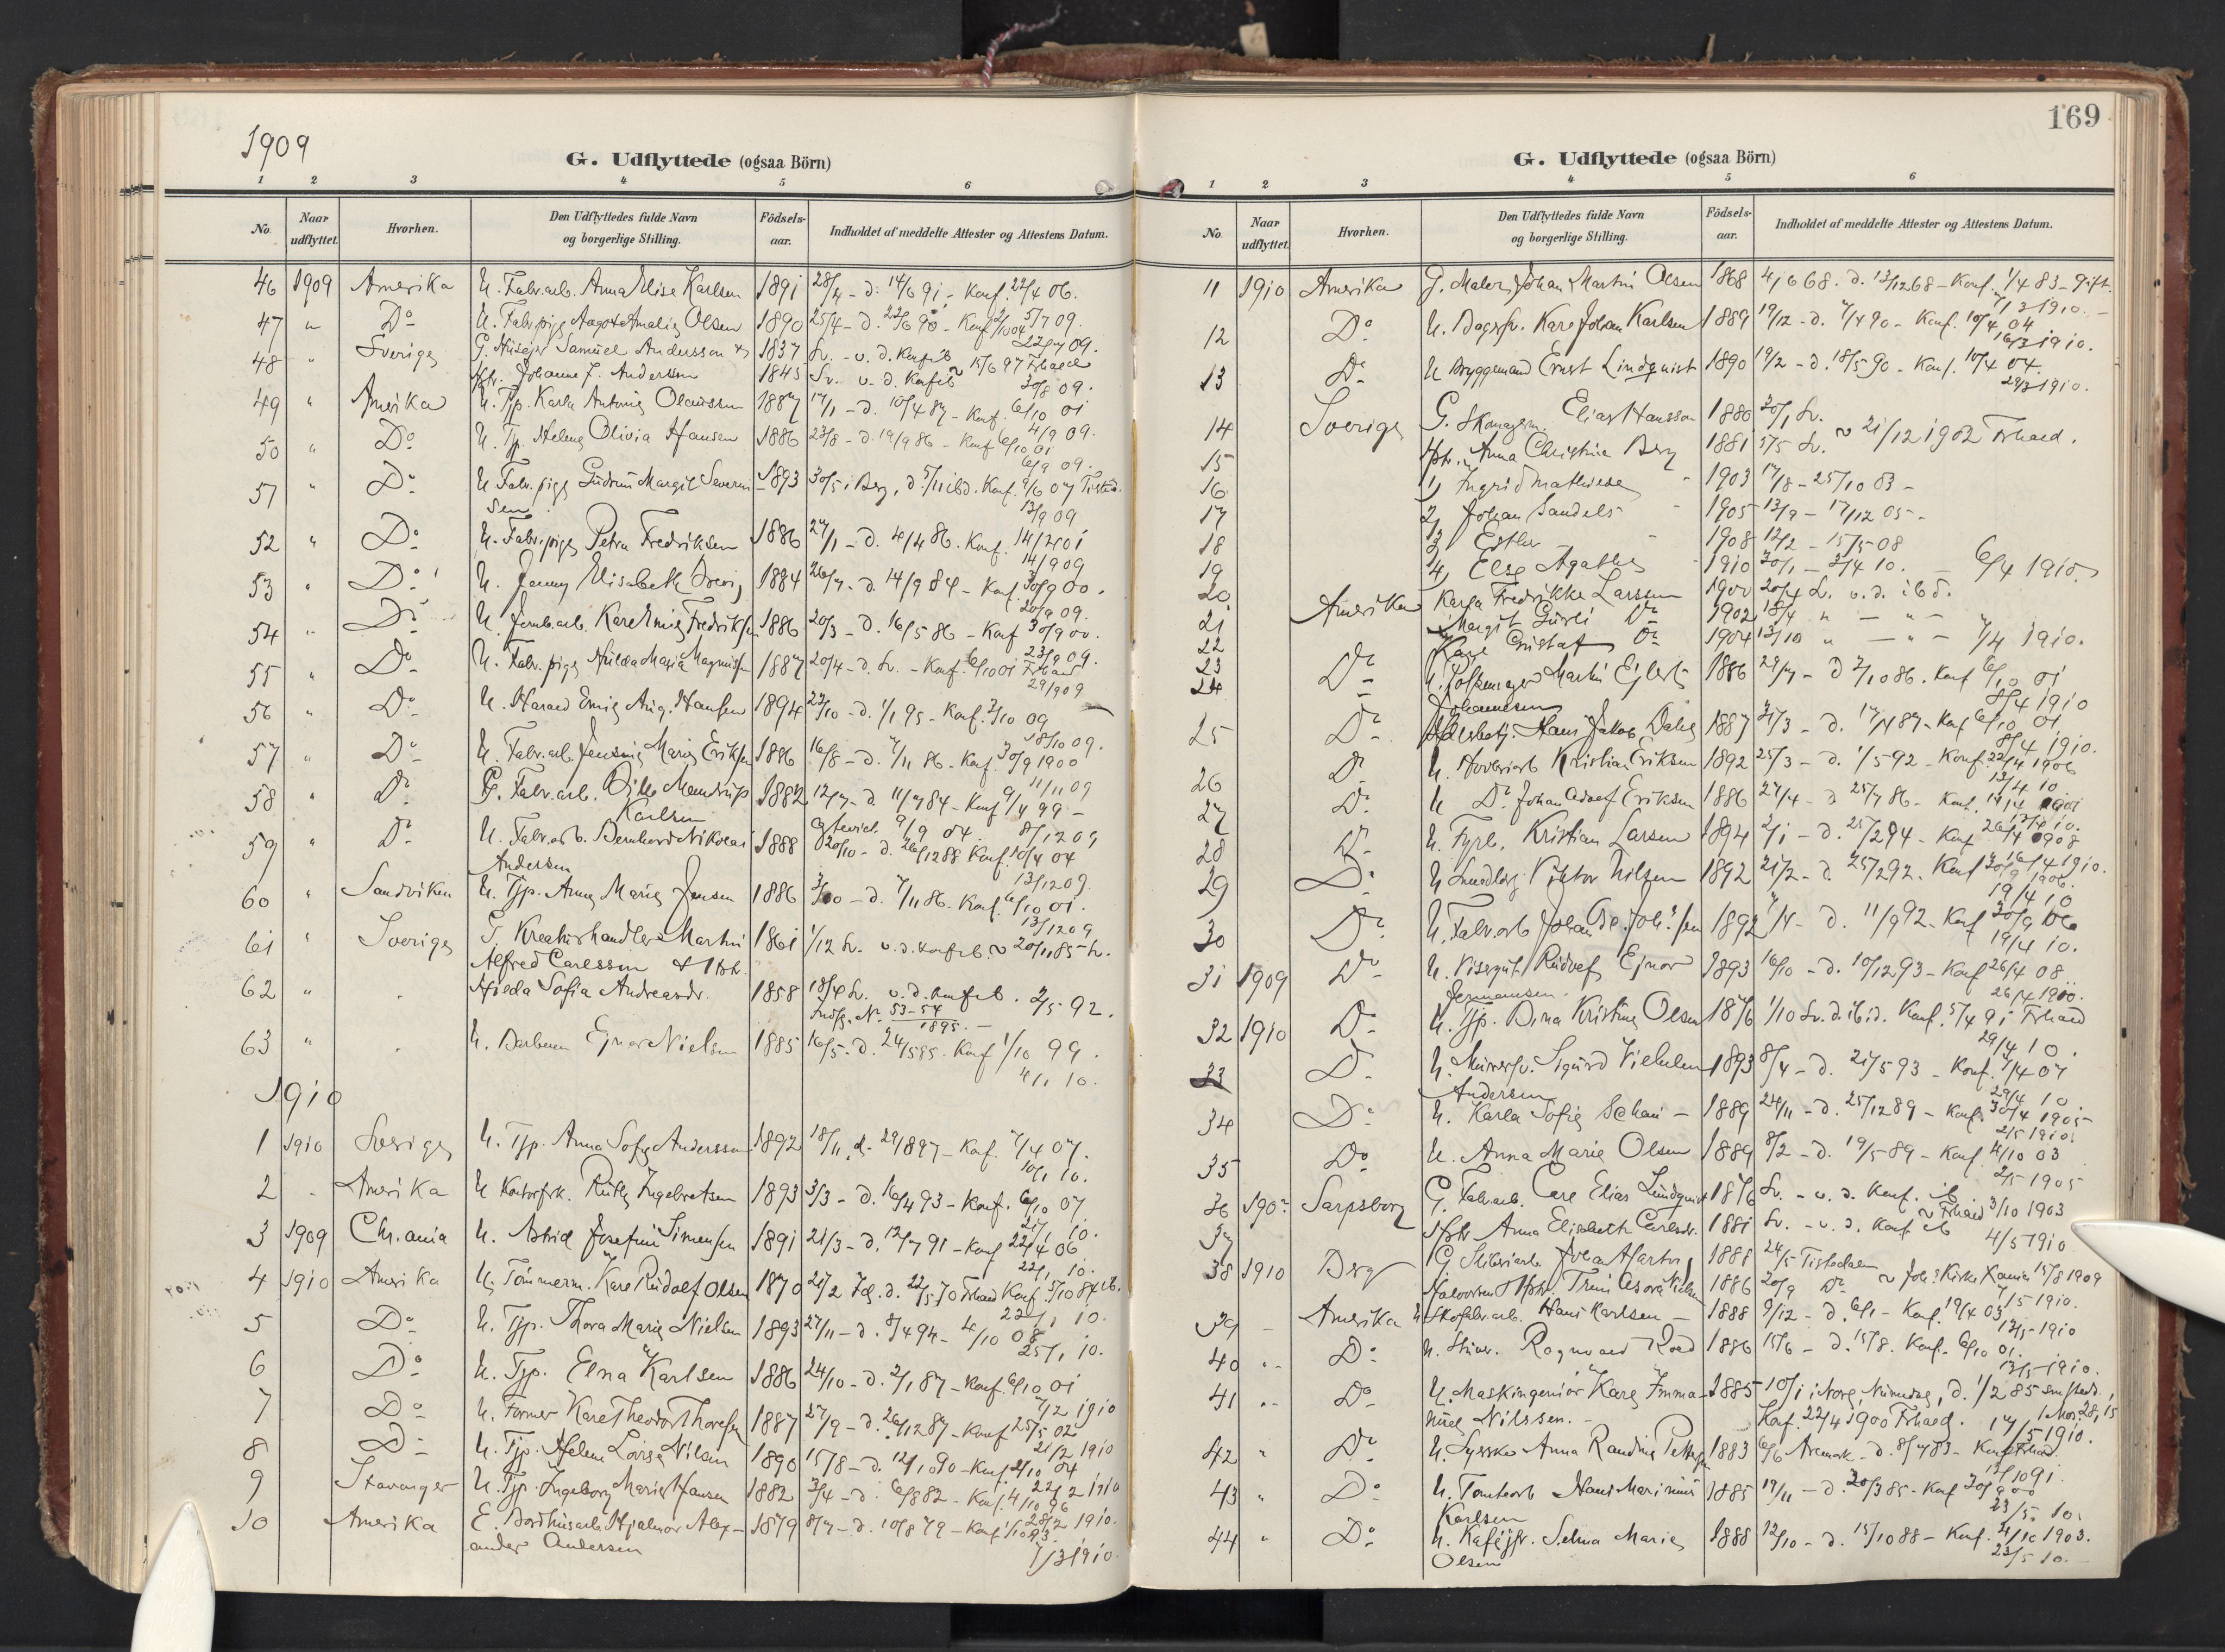 1909
G. Udflyttede (ogsaa Börn)
1 2 3 4 5 6
No. Naar udflyttet. Hvorhen. Den Udflyttedes fulde Navn og borgerlige Stilling. Födsels-aar. Indholdet af meddelte Attester og Attestens Datum.
46 1909 Amerika U. Fabr.arb. Anna Elise Karlsen 1891 28/4 - d. 14/6 91 - Konf. 22/4 06.
5/7 09.
47 " Do U. Fabr.pige Aagot Amalie Olsen 1890 25/4 - d. 22/6 90 - Konf. 2/10 04
22/7 09.
48 " Sverige G. Huseier Samuel Andersson & 1837 Sv. - v. d. Konf. ib ~ 15/6 97 Frhald
Hstr. Johanne J. Andersen 1845 Sv. v. d. Konf. ib 30/8 09.
49 " Amerika U. Tjp. Karla Antonie Olaussen 1887 17/1 - d. 10/4 87 - Konf. 6/10 01
4/9 09.
50 " Do U. Tjp. Helene Olivia Hansen 1886 23/8 - d. 19/9 86 - Konf. 6/10 01
6/9 09.
51 " Do U. Fabr.pige Gudrun Margit Severin- 1893 30/5 i Berg, d. 5/11 ibd. Konf. 9/6 07 Tisted.
sen. 13/9 09
52 " Do U. Fabr.pige Petra Fredriksen 1886 27/1 - d. 4/4 86. Konf. 14/4 01
14/9 09
53 " Do U. Jenny Elisabeth 1884 26/7 - d. 14/9 84 - Konf. 30/9 00.
20/9 09.
54 " Do U. Jernb.arb. Karl Emil Fredriksen 1886 20/3 - d. 16/5 86 - Konf. 30/9 00.
23/9 09.
55 " Do U. Fabr.pige Hilda Maria Magnussen 1887 20/4 - d. Sv. - Konf. 6/10 01 Frhald
29/9 09
56 " Do U. Harald Emil Aug. Hansen 1894 22/10 - d. 1/1 95 - Konf. 3/10 09
18/10 09.
57 " Do U. Fabr.arb. Jensine Marie Eriksen 1886 16/8 - d. 7/11 86 - Konf. 30/9 1900
11/11 09
58 " Do G. Fabr.arb. Mandrup 1882 12/7 - d. 11/7 84 - Konf. 9/4 99 -
Karlsen 9/9 04. 8/12 09
59 " Do U. Fabr.arb. Bernhard Nikolai 1888 20/10 - d. 26/12 88 Konf. 10/4 04
Andersen 13/12 09.
60 " Sandviken U. Tjp. Anna Marie Jensen 1886 3/10 - d. 7/11 86. Konf. 6/10 01.
13/12 09
61 " Sverige G. Kreaturhandler Martin 1861 1/12 Sv. v. d. konf. ib. ~ 20/11 85 Sv.
Alfred Carlsson & Hstr.
62 " " Hilda Sofia Andreasdr. 1858 18/4 Sv. v. d. konf. ib. 2/5 92.
Indfl. No 53-54 1895. -
63 " " U. Barberer Ejnar Nielsen 1885 16/5 - d. 24/5 85. Konf. 1/10 99.
4/1 10.
1910
1 1910 Sverige U. Tjp. Anna Sofie Andersson 1892 18/11 d. 29/8 97 - Konf. 7/4 07.
10/1 10.
2 - Amerika U. Kontorfrk. Ruth Ingebretsen 1893 3/3 - d. 16/4 93 - Konf. 6/10 07
21/1 10.
3 1909 Chr.ania U. Astrid Josefine Simensen 1891 21/3 - d. 12/7 91 - Konf. 22/4 06
22/1 10.
4 1910 Amerika U. Tömmerm. Karl Rudolf Olsen 1870 21/2 Id. d. 22/5 70 Frhald Konf. 5/10 84 ib.
22/1 10.
5 Do U. Tjp. Thora Marie Nielsen 1893 27/11 - d. 8/4 94 - 4/10 08
25/1 10.
6 Do U. Tjp. Elna Karlsen 1886 24/10 - d. 2/1 87 - Konf. 6/10 01
7/2 1910
7 Do U. Former Karl Theodor Thoresen 1887 27/9 - d. 26/12 87 - Konf. 25/5 02
21/2 1910
8 Do U. Tjp. Helene Lovise Nilsen 1890 15/8 - d. 12/10 90 - Konf. 2/10 04
22/2 1910
9 Stavanger U. Tjp. Ingeborg Marie Hansen 1882 3/4 - d. 6/8 82 - Konf. 4/10 96
28/2 1910.
10 Amerika E. Bordhusarb. Hjalmar Alex- 1879 8/7 - d. 10/8 79 - Konf. 1/10 93
ander Andersen 1/3 1910.
169
G. Udflyttede (ogsaa Börn)
1 2 3 4 5 6
No. Naar udflyttet. Hvorhen. Den Udflyttedes fulde Navn og borgerlige Stilling. Födsels-aar. Indholdet af meddelte Attester og Attestens Datum.
11 1910 Amerika G. Maler Johan Martin Olsen 1868 4/6 68. d. 13/12 68 - Konf. 1/4 83 - gift.
1/3 1910. -
12 Do U. Bagersv. Karl Johan Karlsen 1889 19/12 - d. 7/4 90 - Konf. 10/4 04
16/3 1910.
13 Do U. Bryggemand Ernst Lindquist 1890 19/2 - d. 18/5 90 - Konf. 10/4 04.
29/3 1910.
14 Sverige G. Skomagerm. Elias Hansson 1880 30/1 Sv.
15 Hstr. Anna Christine Berg 1881 5/5 Sv. ~ 21/12 1902 Frhald.
16 1, Ingrid Mathilde 1903 17/8 - 25/10 03 -
17 2, Johan Sandels 1905 13/9 - 17/12 05 -
18 3, Esther 1908 12/2 - 15/5 08
19 4, Else Agathe 1910 30/1 - 3/4 10. - 6/4 1910.
20 Amerika Karla Fredrikke Larssen 1900 20/4 Sv. v. d. ibd.
21 Margit Gurli Do 1902 18/4 " - " -
22 Karl Gustaf Do 1904 13/10 " - " - 7/4 1910.
23
24 Do U. Martin Ejlert 1886 29/7 - d. 3/10 86. Konf. 6/10 01
Johannesen 8/4 1910
25 Do Hans Jakob Dahl 1887 31/3 - d. 17/4 87 - Konf. 6/10 01
8/4 1910.
26 Do U. Høvleriarb. Kristian Eriksen 1892 25/3 - d. 1/5 92 - Konf. 22/4 1906
13/4 10.
27 Do U. Do Johan Adolf Eriksen 1886 27/4 - d. 25/7 86 - Konf. 14/4 1901
13/4 10.
28 Do U. Fyrb. Kristian Larsen 1894 2/1 - d. 25/2 94 - Konf. 26/4 1908
16/4 1910.
29 Do U. Viktor Nilsen 1892 21/2 - d. 25/2 92. Konf. 30/9 1906.
19/4 10
30 Do U. Fabr.arb. 1892 7/4 - d. 11/9 92 - Konf. 30/9 06
19/4 10.
31 1909 Do U. Visergut Rudolf Ejnar 1893 16/10 - d. 10/12 93 - Konf. 26/4 08
Jermansen. 26/4 1910.
32 1910 Do U. Tjp. Dina Kristine Olsen 1876 1/10 Sv. d. ibid. Konf. 5/4 91 Frhald
29/4 10.
33 Do U. Murersv. Sigurd Vilhelm 1893 8/4 - d. 21/5 93 - Konf. 7/4 07
Andersen 29/4 10
34 Do U. Karla Sofie Schau - 1889 24/11 - d. 25/12 89 - Konf. 30/4 1905
2/5 1910.
35 Do U. Anna Marie Olsen 1889 8/2 - d. 19/5 89 - Konf. 4/10 03
2/5 1905
36 190? Sarpsborg G. Fabr.arb. Carl Elias Lundquist 1876 Sv. - v. d. Konf. ib.
~ Frhald 3/10 1903
37 Hstr. Anna Elisabeth Carlsdr. 1881 Sv. - v. d. Konf. ib 4/5 1910
38 1910 Berg G. Sliberiarb. Johan Martin 1888 24/5 Tistedalen ~ Joh. Kirke Xania 15/8 1909
Halvorsen & Hstr. Trine Aslora Nielsen 1886 20/9 Do 7/5 1910.
39 - Amerika U. Skofabr.arb. Hans Karlsen - 1888 9/12 - d. 6/1 - Konf. 19/4 03
12/5 1910
40 " Do U. Stuer. Ragnvald Roed 1886 15/6 - d. 15/8. Konf. 6/10 01.
13/5 1910.
41 " Do U. Maskingeniør Karl Imma- 1885 10/1 i Nore, Numedal, d. 1/2 85 smsteds,
nuel Nilssen. - Konf. 22/4 1900 Frhald. 1 Mos. 28, 15
14/5 1910.
42 " Do U. Syerske Anna Randine Pettersen 1883 6/6 Aremark - d. 8/7 83 - Konf. Frhald
43 " Do U. Tomtearb. Hans Marinius 1885 19/11 - d. 20/3 85 - Konf. 30/9 00
Karlsen 23/5 10.
44 " Do U. Kaféjfr. Selma Marie 1888 12/10 - d. 15/10 88 - Konf. 4/10 1903.
Olsen 23/5 10. -